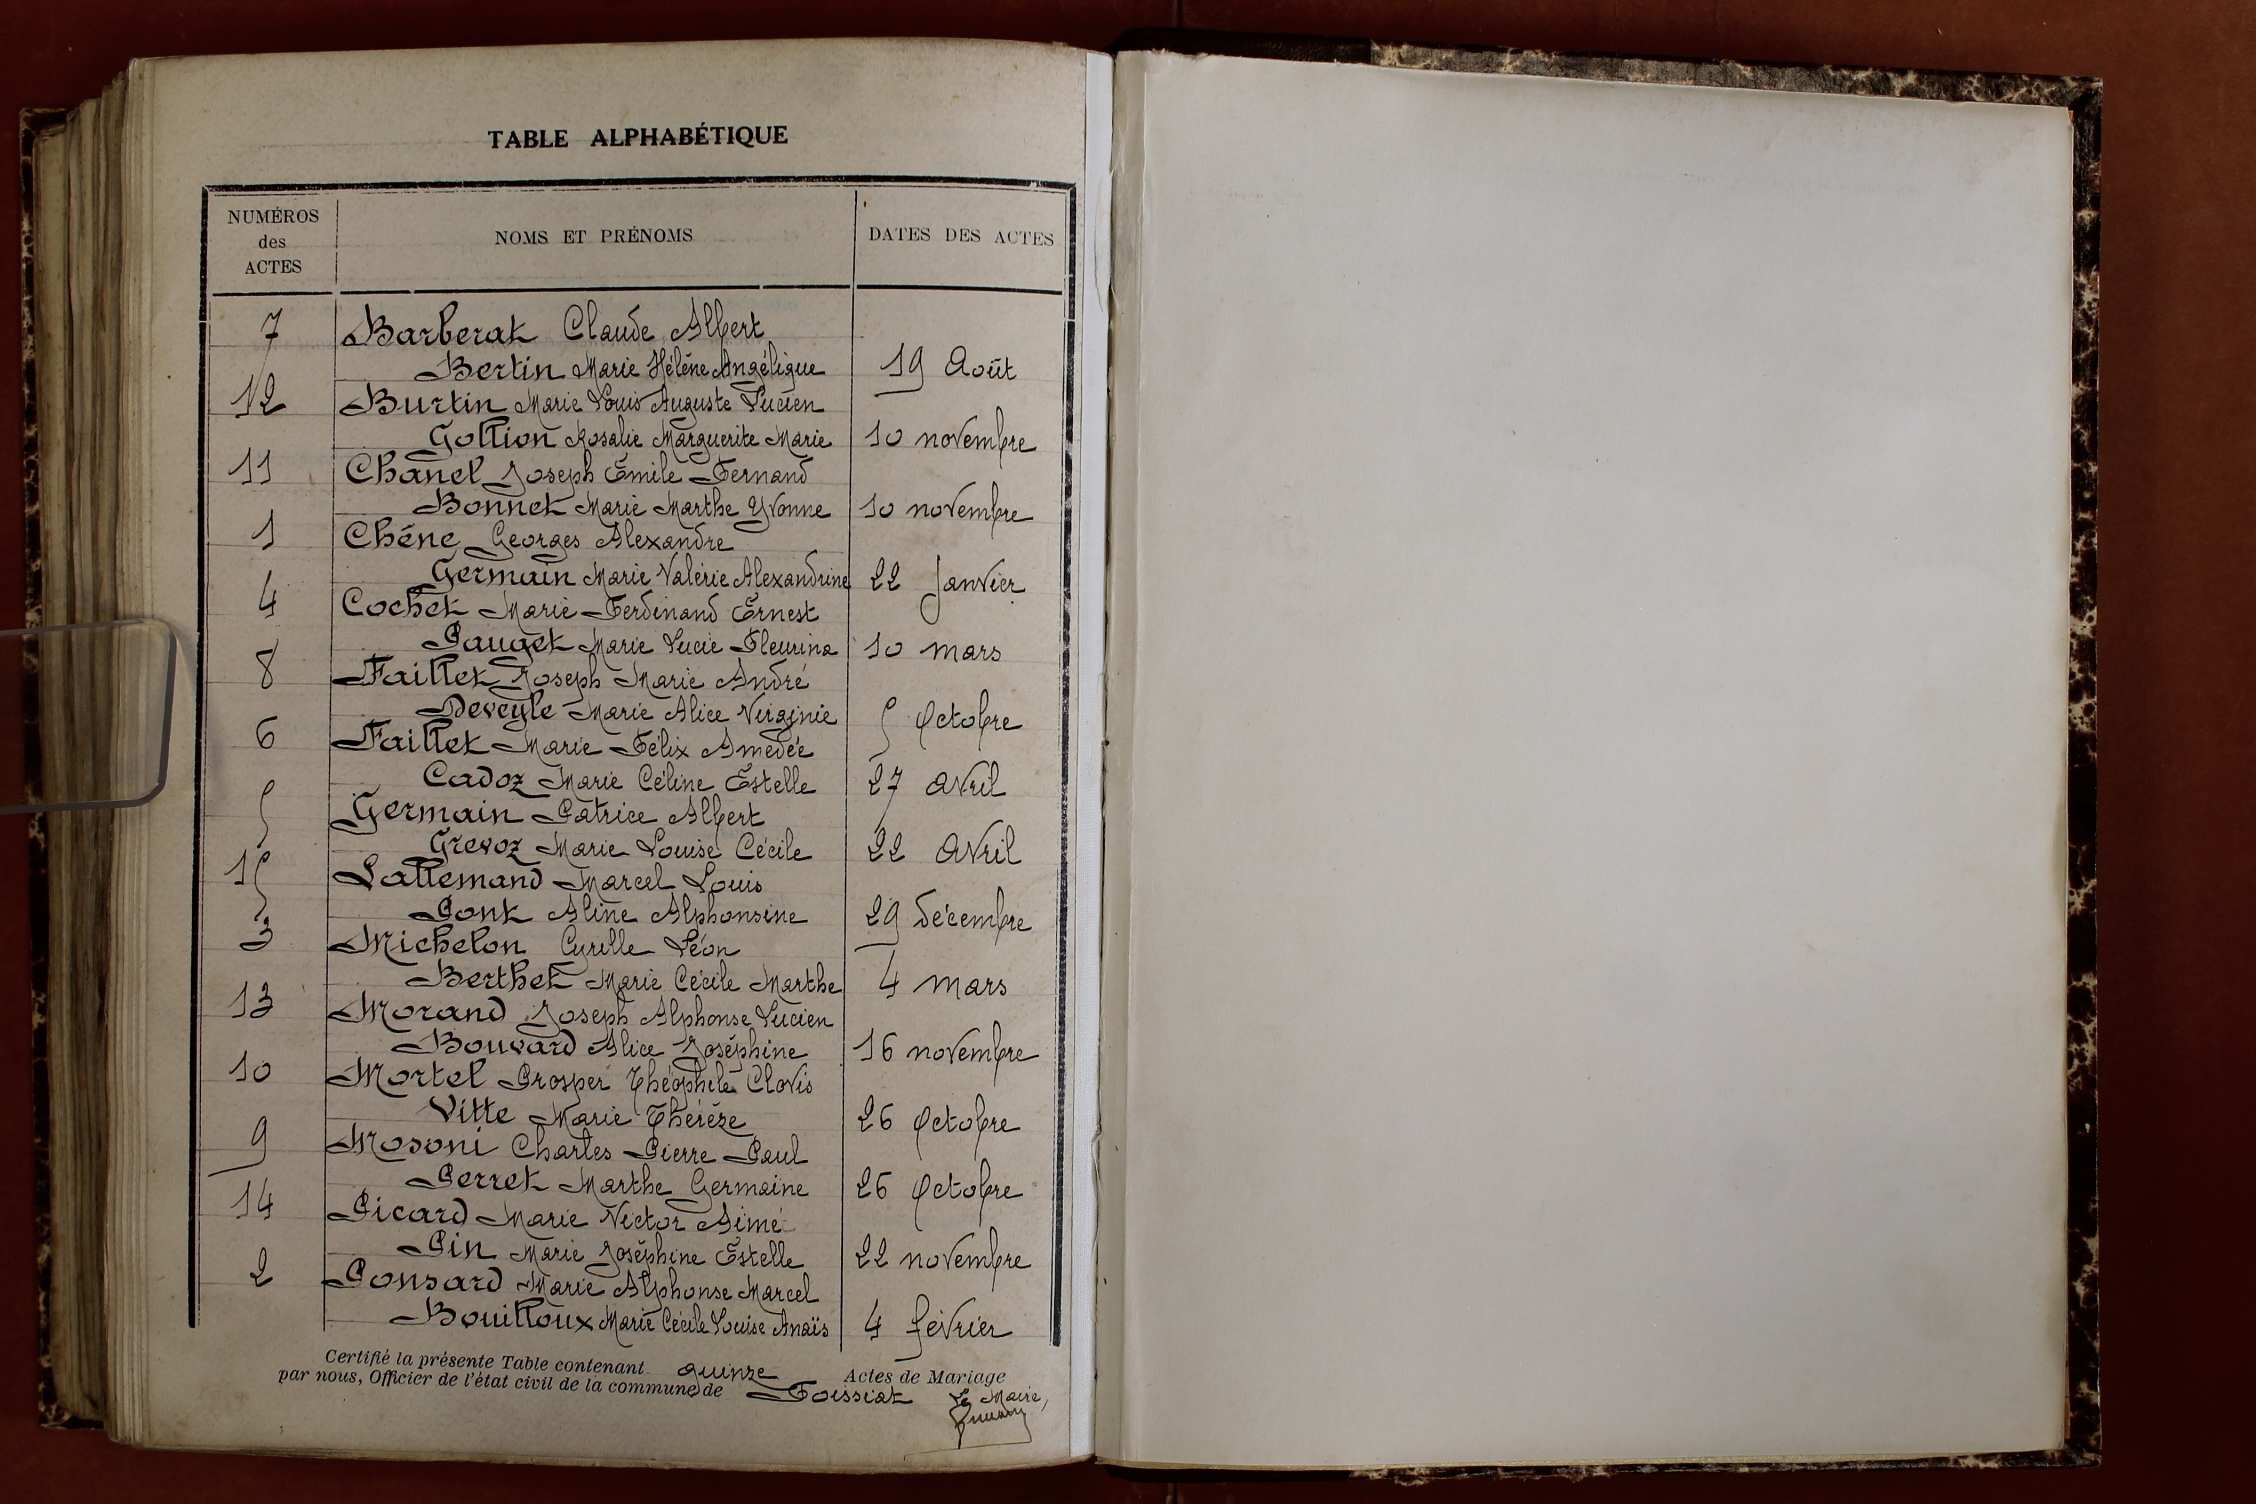 TABLE ALPHABÉTIQUE
NUMÉROS
des
ACTES
NOMS ET PRÉNOMS
DATES DES ACTES
7 Barberat Claude Albert
Bertin Marie Hélène Angélique 19 Août
12 Burtin Marie Louis Auguste Lucien
Gollion Rosalie Marguerite Marie 10 novembre
11 Chanel Joseph Emile Fernand
Bonnet Marie Marthe Yvonne 10 novembre
1 Chêne Georges Alexandre
Germain Marie Valérie Alexandrine 22 Janvier
4 Cochet Marie Ferdinand Ernest
Pauget Marie Lucie Fleurina 10 mars
8 Faillet Joseph Marie André
Deveyle Marie Alice Virginie 5 Octobre
6 Faillet Marie Félix Amédée
Cadoz Marie Céline Estelle 27 avril
5 Germain Patrice Albert
Grevoz Marie Louise Cécile 22 Avril
15 Lallemand Marcel Louis
Pont Aline Alphonsine 29 décembre
3 Michelon Cyrille Léon
Berthet Marie Cécile Marthe 4 mars
13 Morand Joseph Alphonse Lucien
Bouvard Alice Joséphine 16 novembre
10 Mortel Prosper Théophile Clovis
Vitte Marie Thérèze 26 Octobre
9 Mosoni Charles Pierre Paul
Perret Marthe Germaine 26 Octobre
14 Picard Marie Victor Aimé
Pin Marie Joséphine Estelle 22 novembre
2 Ponsard Marie Alphonse Marcel
Bouilloux Marie Cécile Louise Anaïs 4 février
Certifié la présente Table contenant quinze Actes de Mariage
par nous, Officier de l'état civil de la commune de Foissiat Le Maire,